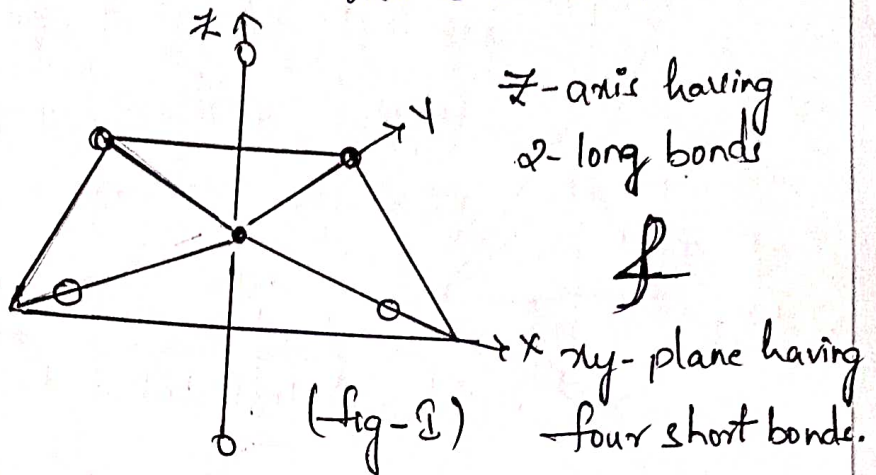 Z
Y
Z-axis having
2-long bonds
&
X
xy-plane having
four short bonds.
(fig-1)